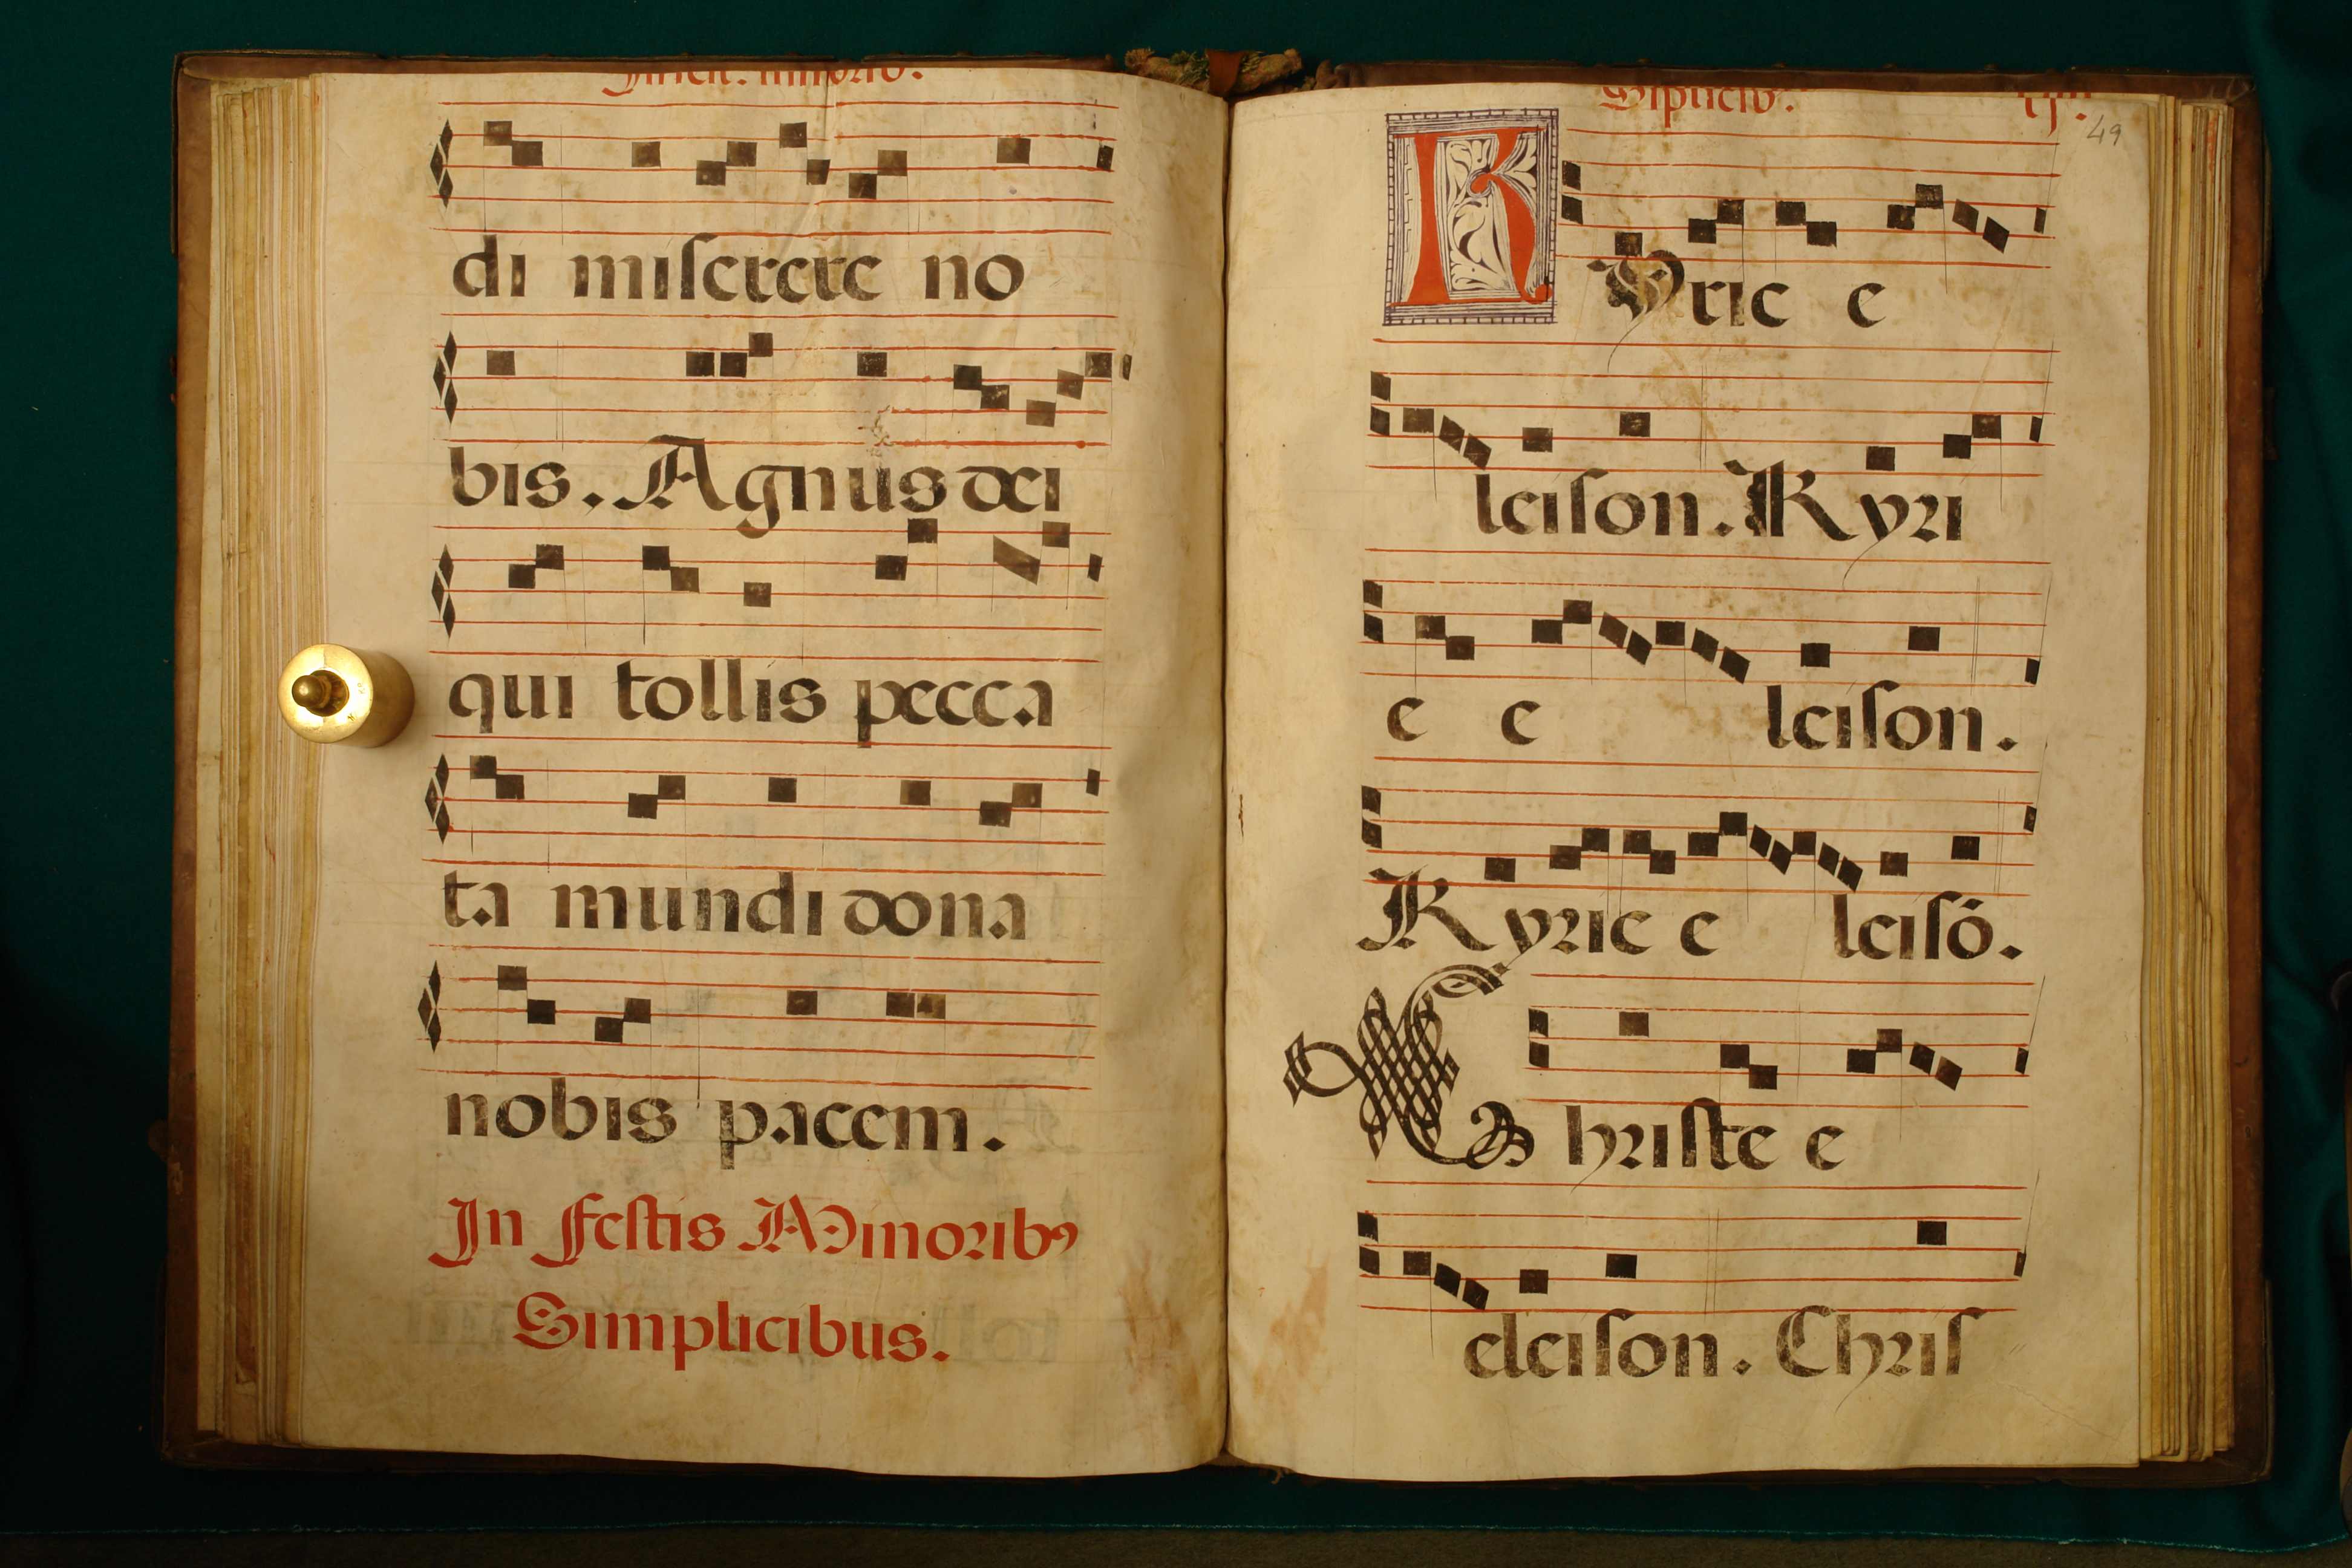 di miserere no
bis. Agnus dei
qui tollis pecca
ta mundi dona
nobis pacem.
In festis Minoribꝰ
Simplicibus.
49
Kyrie e
leison. Kyri
e e leison.
Kyrie e leisō.
Christe e
eleison. Chris